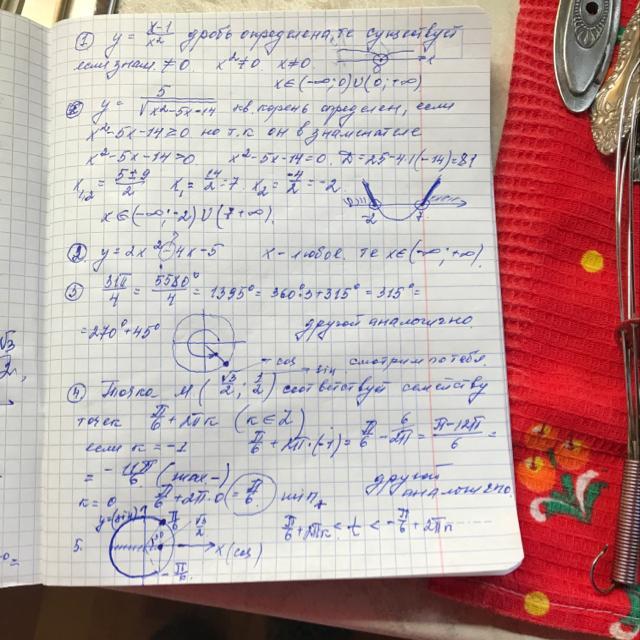 ① y = x-1/x² дробь определена, те существует
если знам ≠ 0. x² ≠ 0. x ≠ 0.
x∈(-∞; 0) ∪ (0; +∞)
y = 5/√(x²-5x-14) кв. корень определен, если
x²-5x-14 ≥ 0 но т.к он в знаменателе
x²-5x-14 > 0. x²-5x-14 = 0. D = 25-4·1(-14) = 81
x₁,₂ = 5±9/2 x₁ = 14/2 = 7. x₂ = -4/2 = -2.
-2 7
x∈(-∞; -2) ∪ (7 +∞).
② y = 2x² - 4x - 5 x - любое. те x∈(-∞; +∞).
③ 31π/4 = 5580°/4 = 1395° = 360°·3 + 315° = 315° =
= 270° + 45° другой аналогично.
- cos sin смотрим по табл.
④ Точка M (√3/2; 1/2) соответствует семейству
точек π/6 + 2πk (k∈Z)
если k = -1 π/6 + 2π·(-1) = π/6 - 2π = π-12π/6 =
= -11π/6 (max-)
k = 0 π/6 + 2π·0 = π/6 min+ другой аналогично.
5. π/6 √3/2 -π/6 x (cos) π/6 + 2πk < t < -π/6 + 2πn